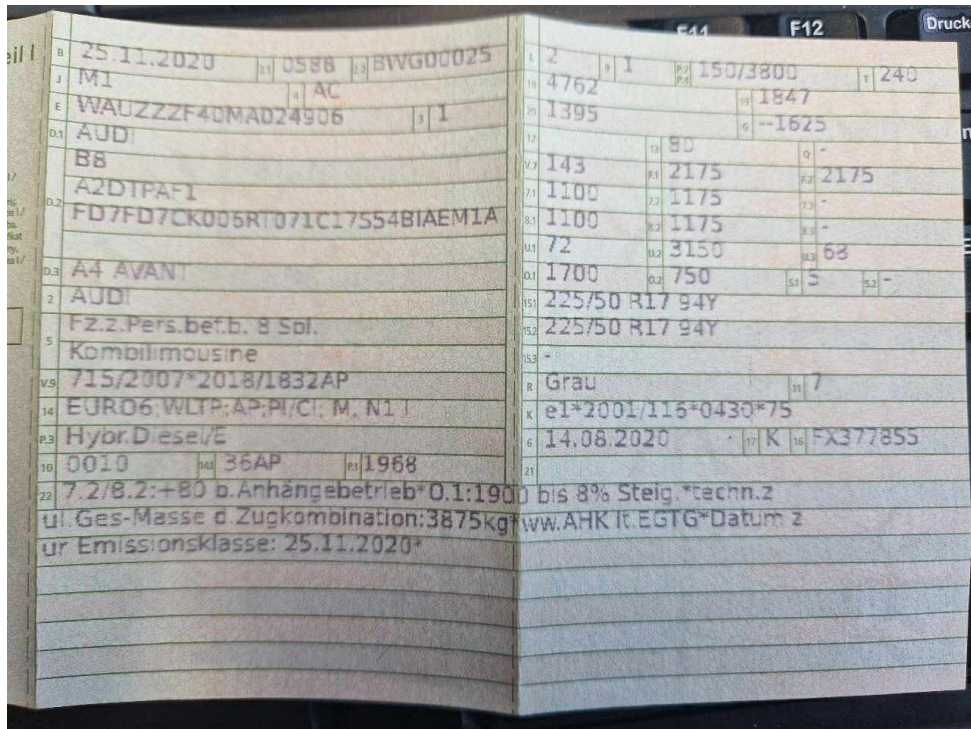 eil I
B 25.11.2020 2.1 0588 2.2 BWG00025
J M1 4 AC
E WAUZZZF40MA024906 3 1
D.1 AUDI
B8
D.2 A2DTPAF1
FD7FD7CK006RT071C17S54BIAEM1A
D.3 A4 AVANT
2 AUDI
5 Fz.z.Pers.bef.b. 8 Spl.
Kombilimousine
V.9 715/2007*2018/1832AP
14 EURO6;WLTP;AP;PI/CI; M, N1 I
P.3 Hybr.Diesel/E
10 0010 14.1 36AP P.1 1968
L 2 9 1 P.2 P.4 150/3800 T 240
18 4762 19 1847
20 1395 G -1625
12 13 80 Q -
V.7 143 F.1 2175 F.2 2175
7.1 1100 7.2 1175 7.3 -
8.1 1100 8.2 1175 8.3 -
U.1 72 U.2 3150 U.3 68
O.1 1700 O.2 750 S.1 5 S.2 -
15.1 225/50 R17 94Y
15.2 225/50 R17 94Y
15.3 -
R Grau 11 7
K e1*2001/116*0430*75
6 14.08.2020 17 K 16 FX377855
21
22 7.2/8.2:+80 b.Anhängebetrieb*O.1:1900 bis 8% Steig.*techn.z
ul.Ges-Masse d.Zugkombination:3875kg*ww.AHK lt.EGTG*Datum z
ur Emissionsklasse: 25.11.2020*
F11
F12
Druck